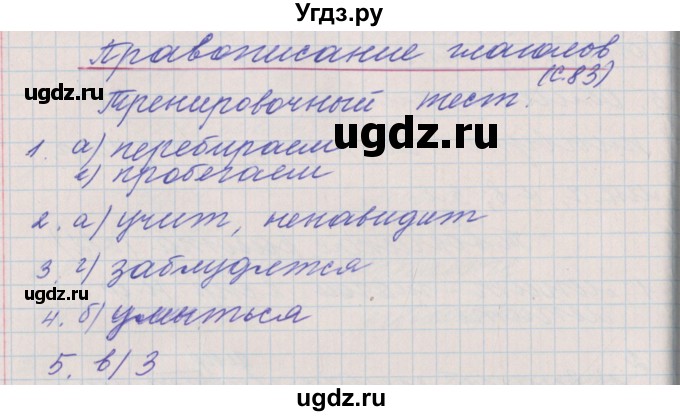 Угдз.ру
Правописание глаголов
(с.83)
Тренировочный тест.
1. а) перебираем
в) пробегаем
2. а) учит, ненавидит
3. г) заблудятся
4. б) умыться
5. в) 3
ugdz.ru
ugdz.ru
ugdz.ru
ugdz.ru
ugdz.ru